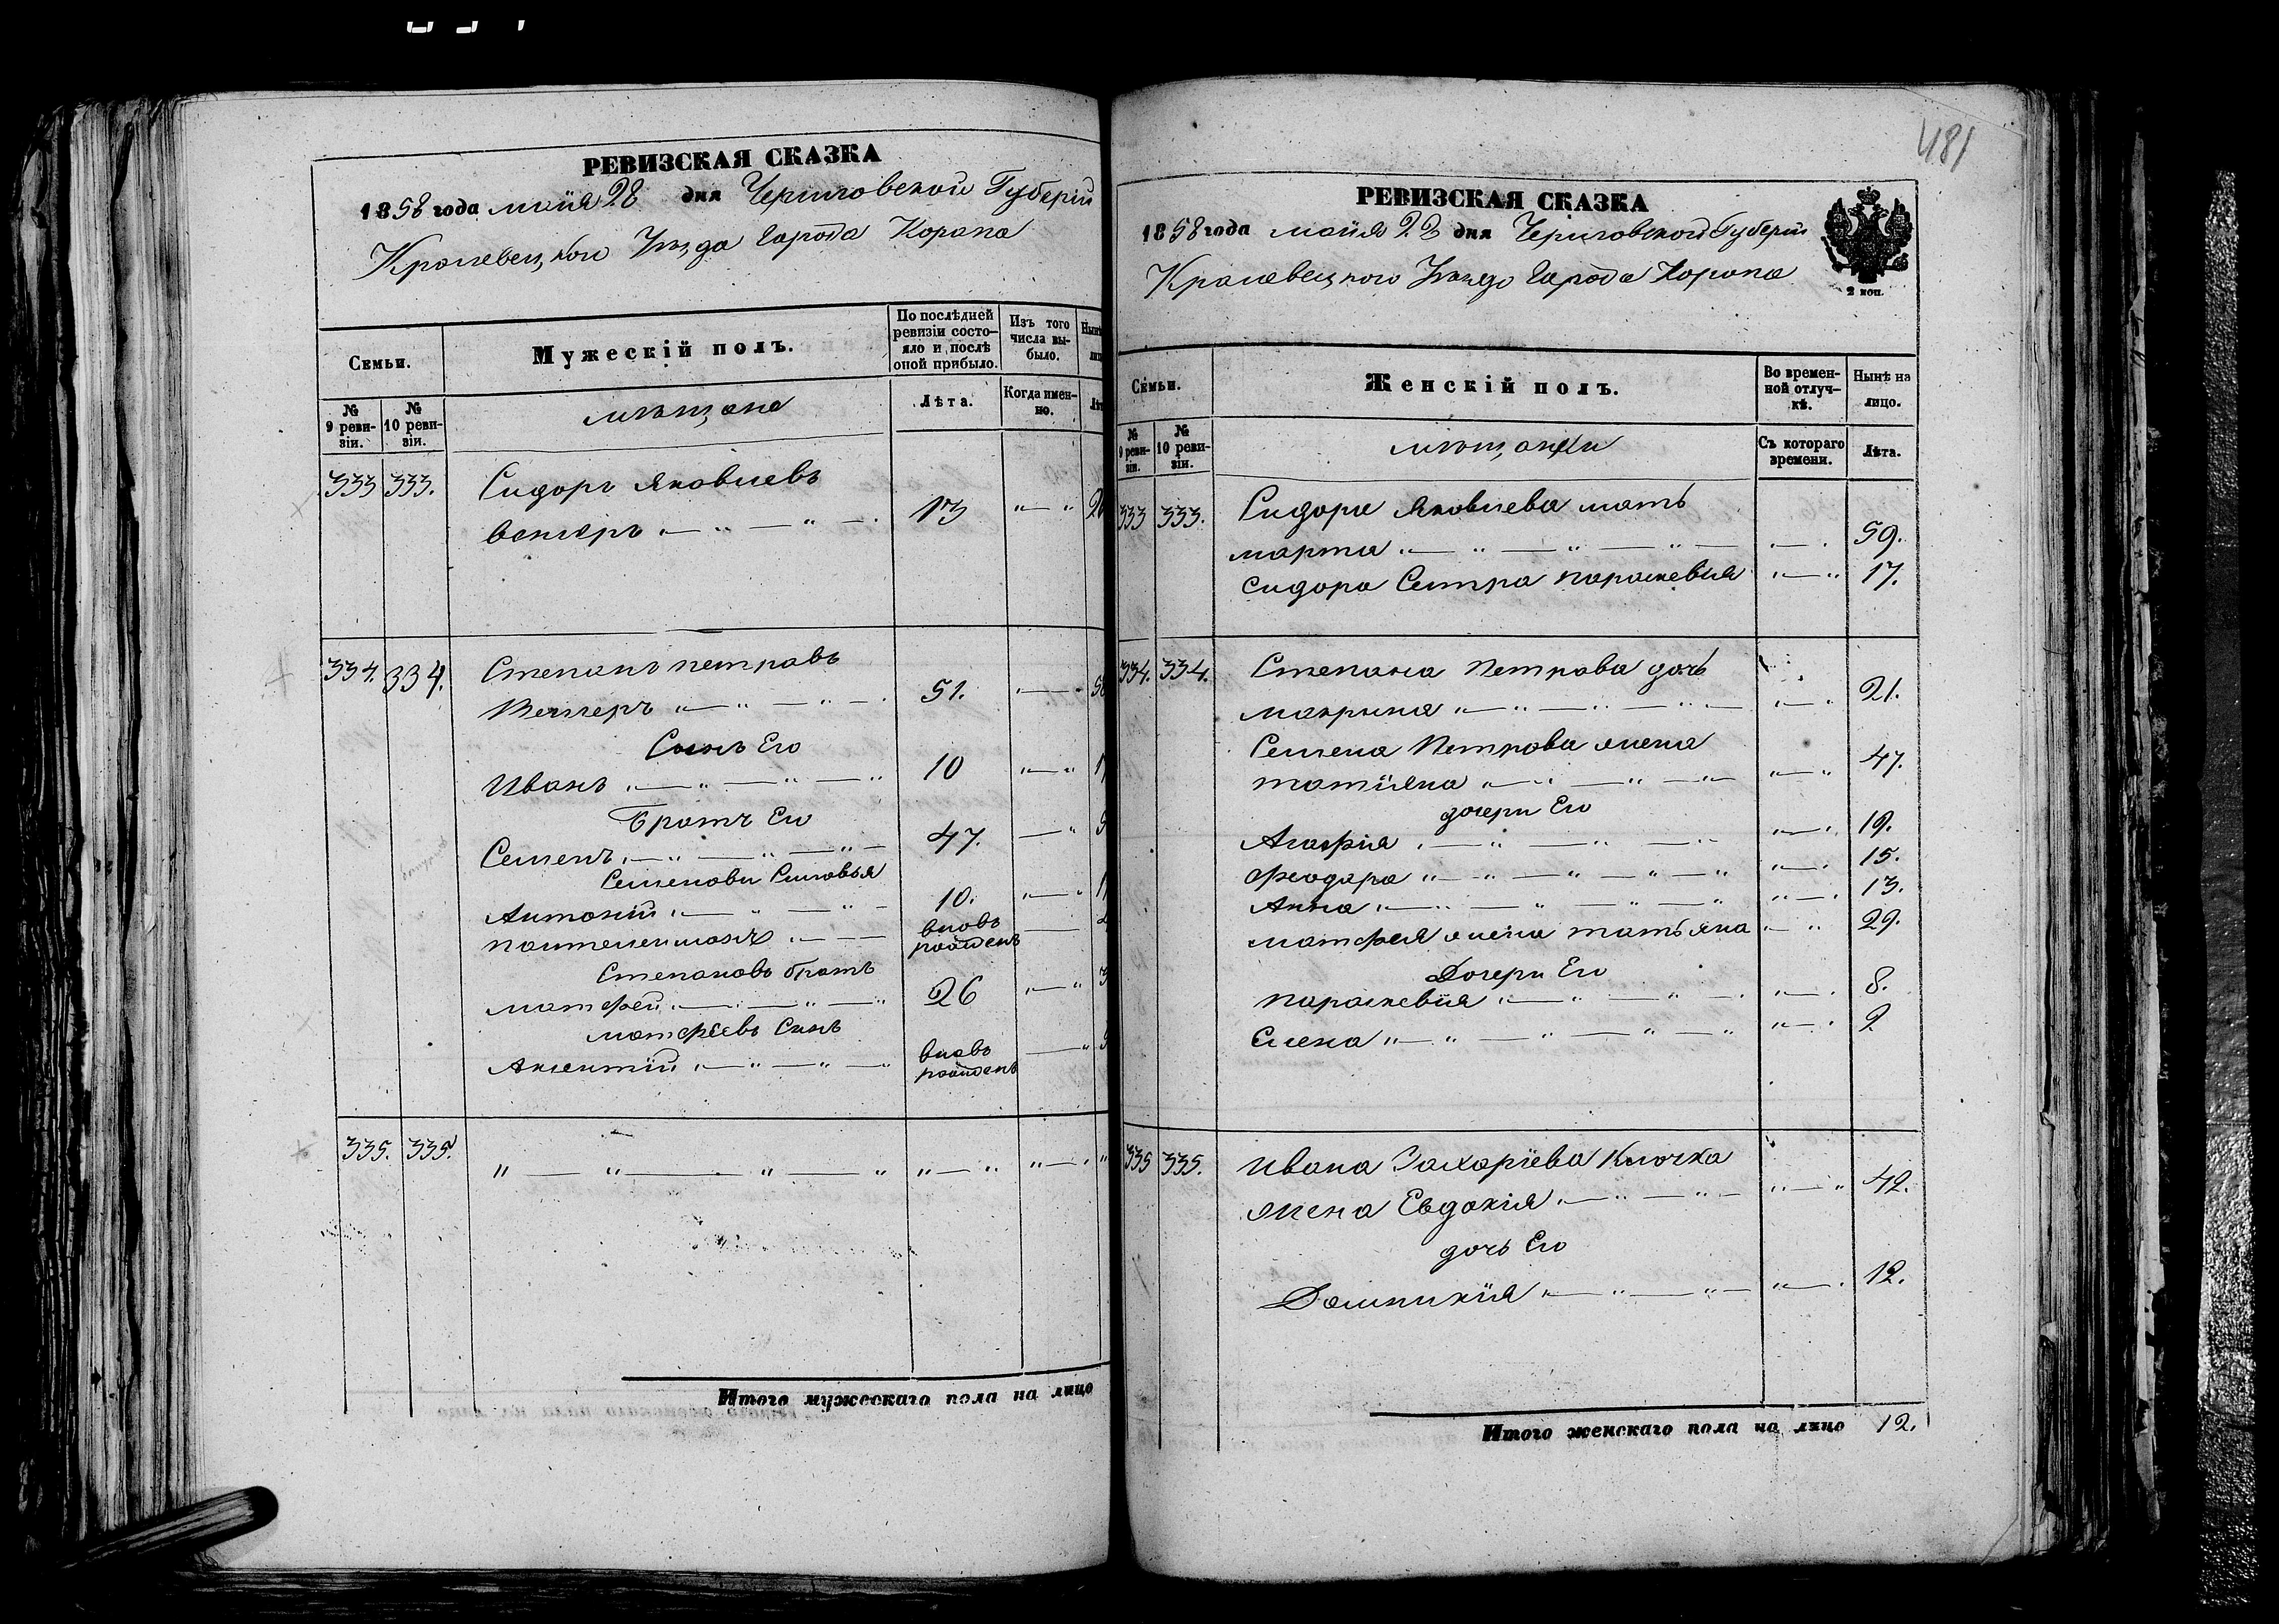 РЕВИЗСКАЯ СКАЗКА
1858 года майя 28 дня Черниговской Губерніи
Кролевецкого Уѣзда Города Коропа
Семьи.
Мужескій полъ.
По послѣдней ревизіи состо-
яло и послѣ
оной прибыло.
Изъ того
числа вы-
было.
№
9 реви-
зіи.
№
10 реви-
зіи.
мѣщане
Лѣта.
Когда имен-
но.
333 333. Сидоръ Яковлевъ
13
334. 334. Степанъ петровъ
51.
Сынъ Его
Иванъ 10
Братъ Его
Семенъ 47.
Семенови Сыновья
Антоній 10.
пантелеимонъ вновь
рожденъ
Степановъ братъ
матфей 26
матфеевъ Сынъ
Авксентій вновь
рожденъ
335. 335.
Итого мужескаго пола на лицо
481
РЕВИЗСКАЯ СКАЗКА
1858 года майя 28 дня Черниговской Губерніи
Кролевецкого Уѣзда Города Коропа
2 коп.
Семьи.
Женскій полъ.
Во времен-
ной отлуч-
кѣ.
Нынѣ на
лицо.
№
9 реви-
зіи.
№
10 реви-
зіи.
мѣщанки
Съ котораго
времени.
Лѣта.
333 333. Сидора Яковлева мать
марта 59.
Сидора Сестра параскевия 17.
334. 334. Степана Петрова дочь
маврина 21.
Семена Петрова жена
татіяна 47.
дочери Его
Агафия 19.
феодора 15.
Анна 13.
матфея жена татьяна 29.
Дочери Его
параскевия 8.
Елена 2
335 335. Ивана Захаріева Клочка
жена Евдокія 42.
дочь Его
Домникія 12.
Итого женскаго пола на лицо 12.